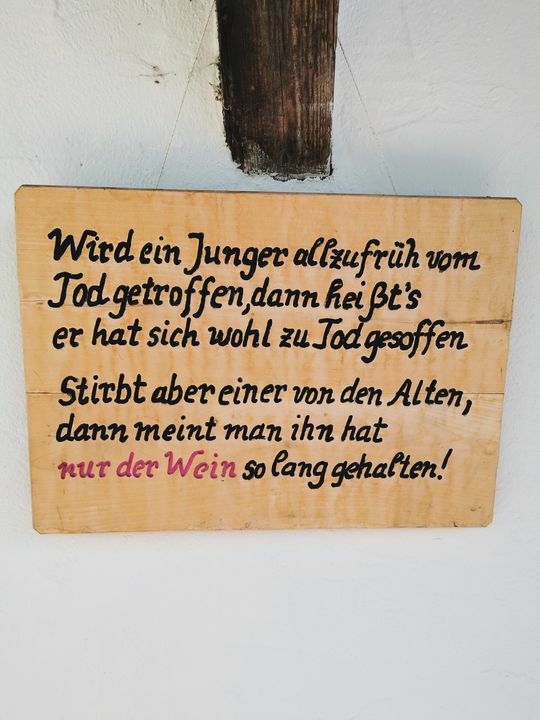 Wird ein Junger allzufrüh vom
Tod getroffen, dann heißt's
er hat sich wohl zu Tod gesoffen
Stirbt aber einer von den Alten,
dann meint man ihn hat
nur der Wein so lang gehalten!